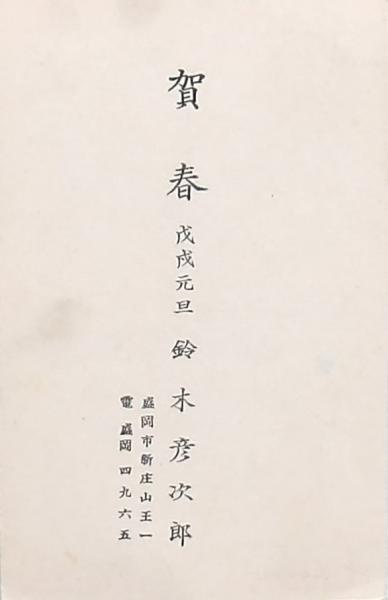 賀春 戊戌元旦 鈴木彦次郎
盛岡市新庄山王一
電 盛岡 四九六五